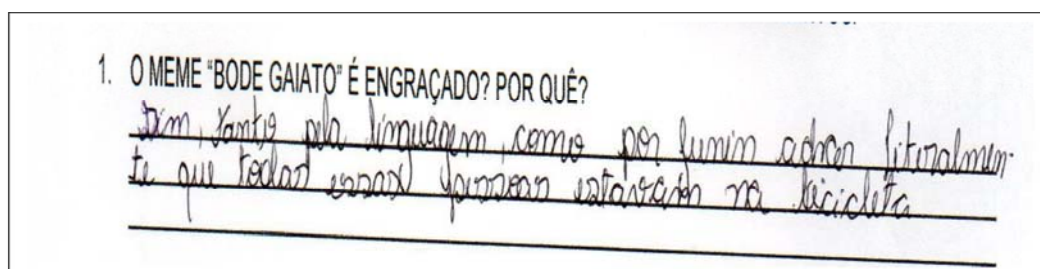 1. O MEME “BODE GAIATO” É ENGRAÇADO? POR QUÊ?
Sim, tanto pela linguagem, como por Junin achar literalmen-
te que todas essas pessoas estavam na bicicleta